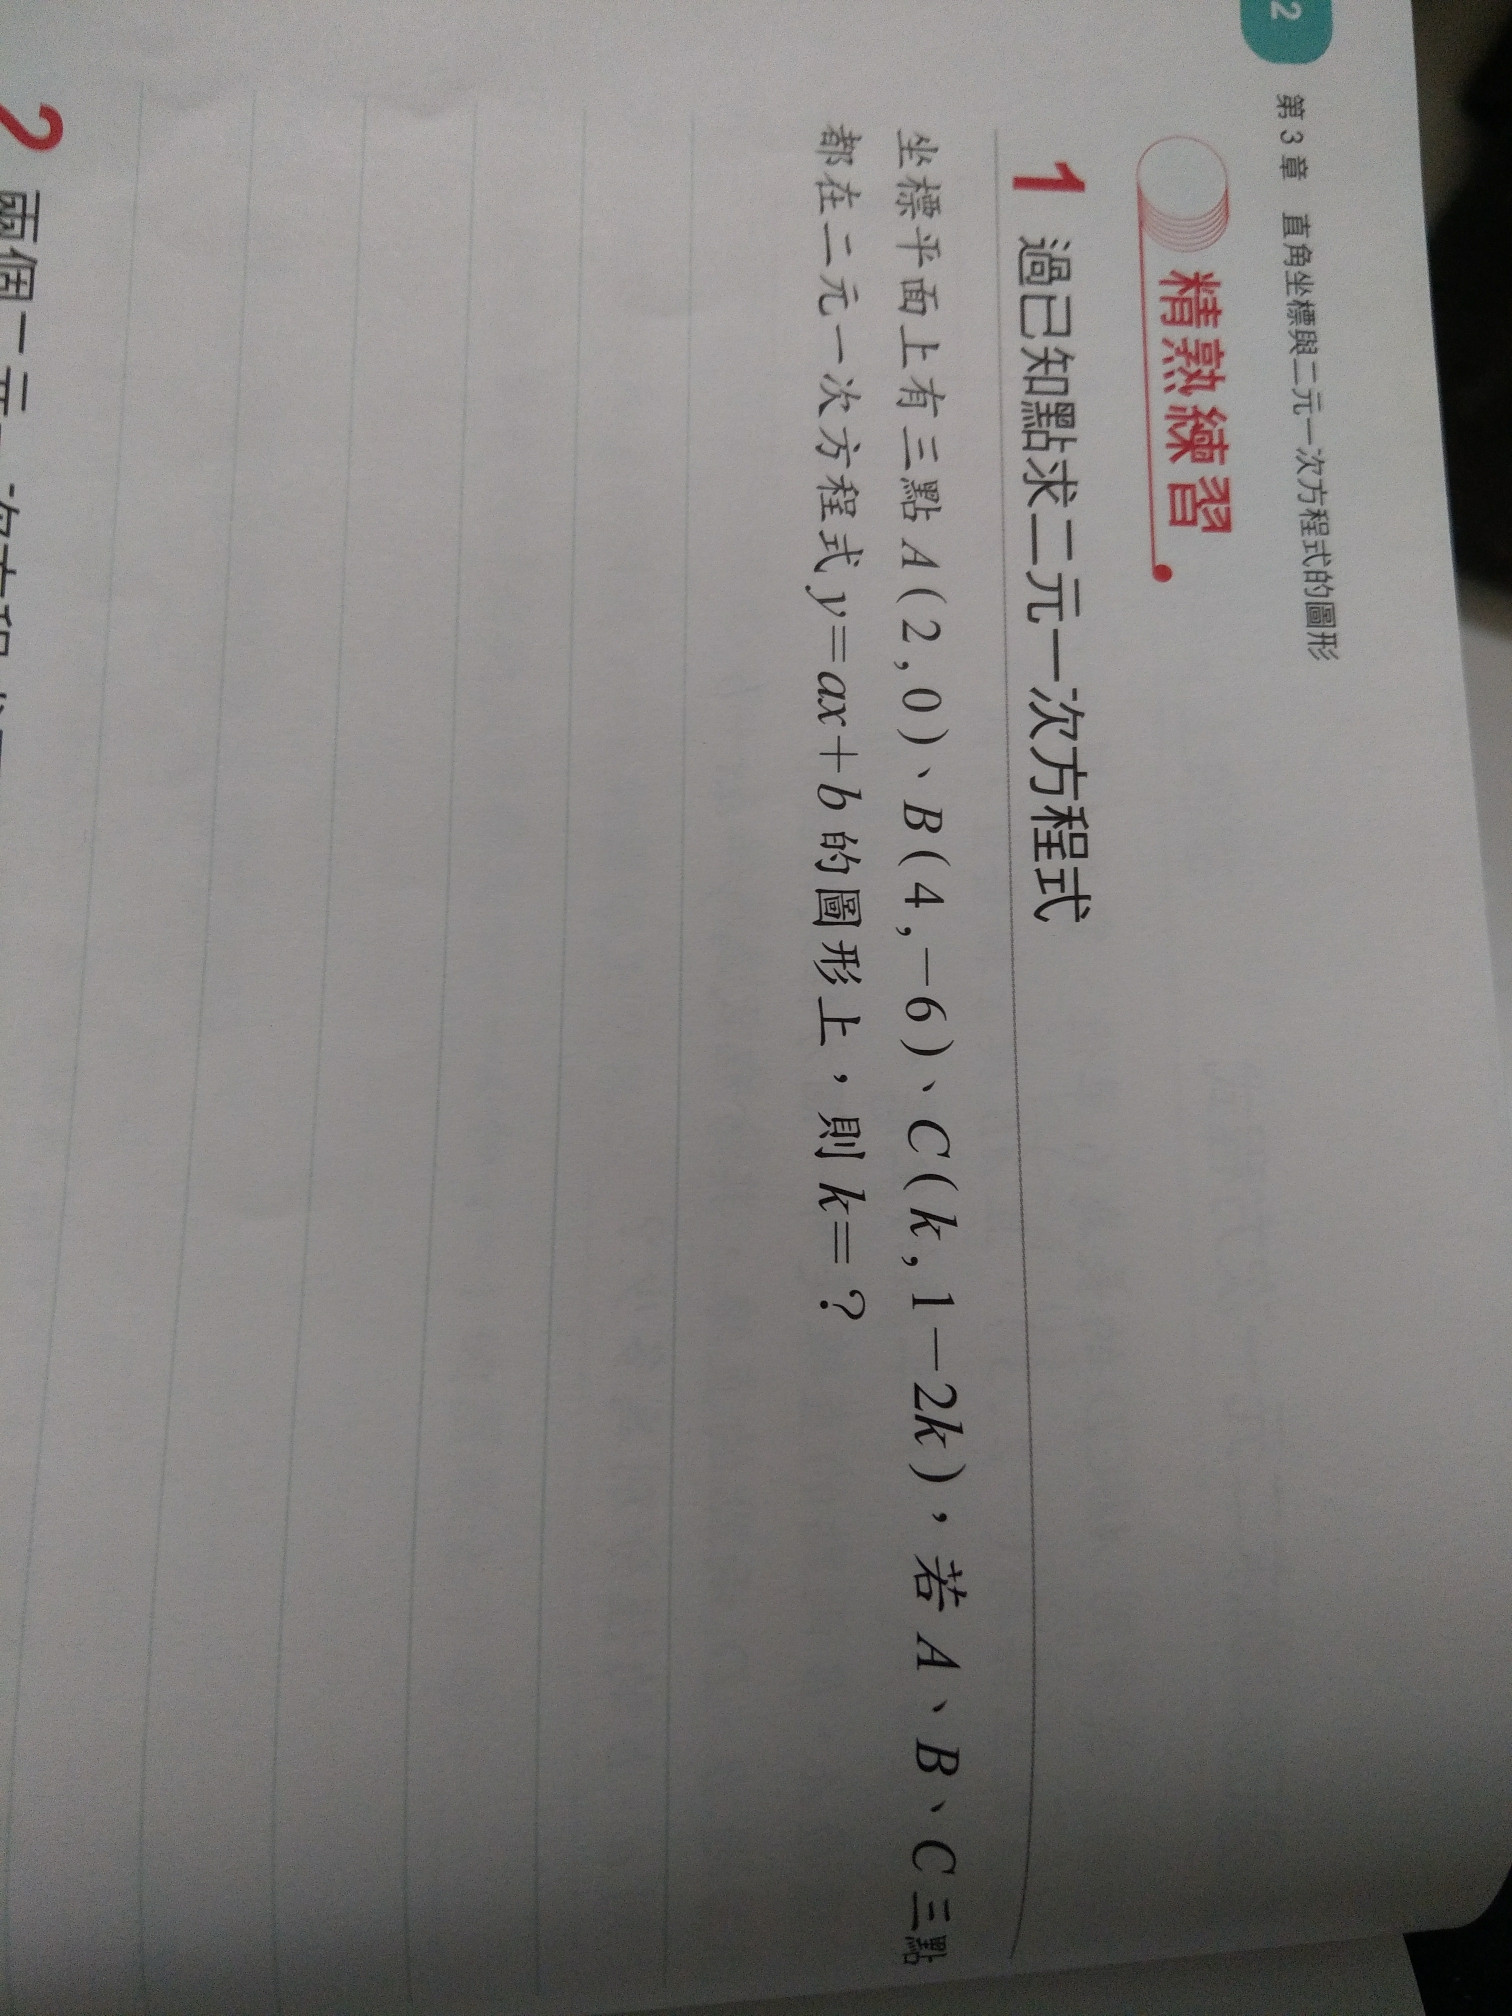 2
第3章 直角坐標與二元一次方程式的圖形
精熟練習
1 過已知點求二元一次方程式
坐標平面上有三點A(2,0)、B(4,-6)、C(k,1-2k),若A、B、C三點
都在二元一次方程式y=ax+b的圖形上,則k=?
2 兩個二元一次方程式